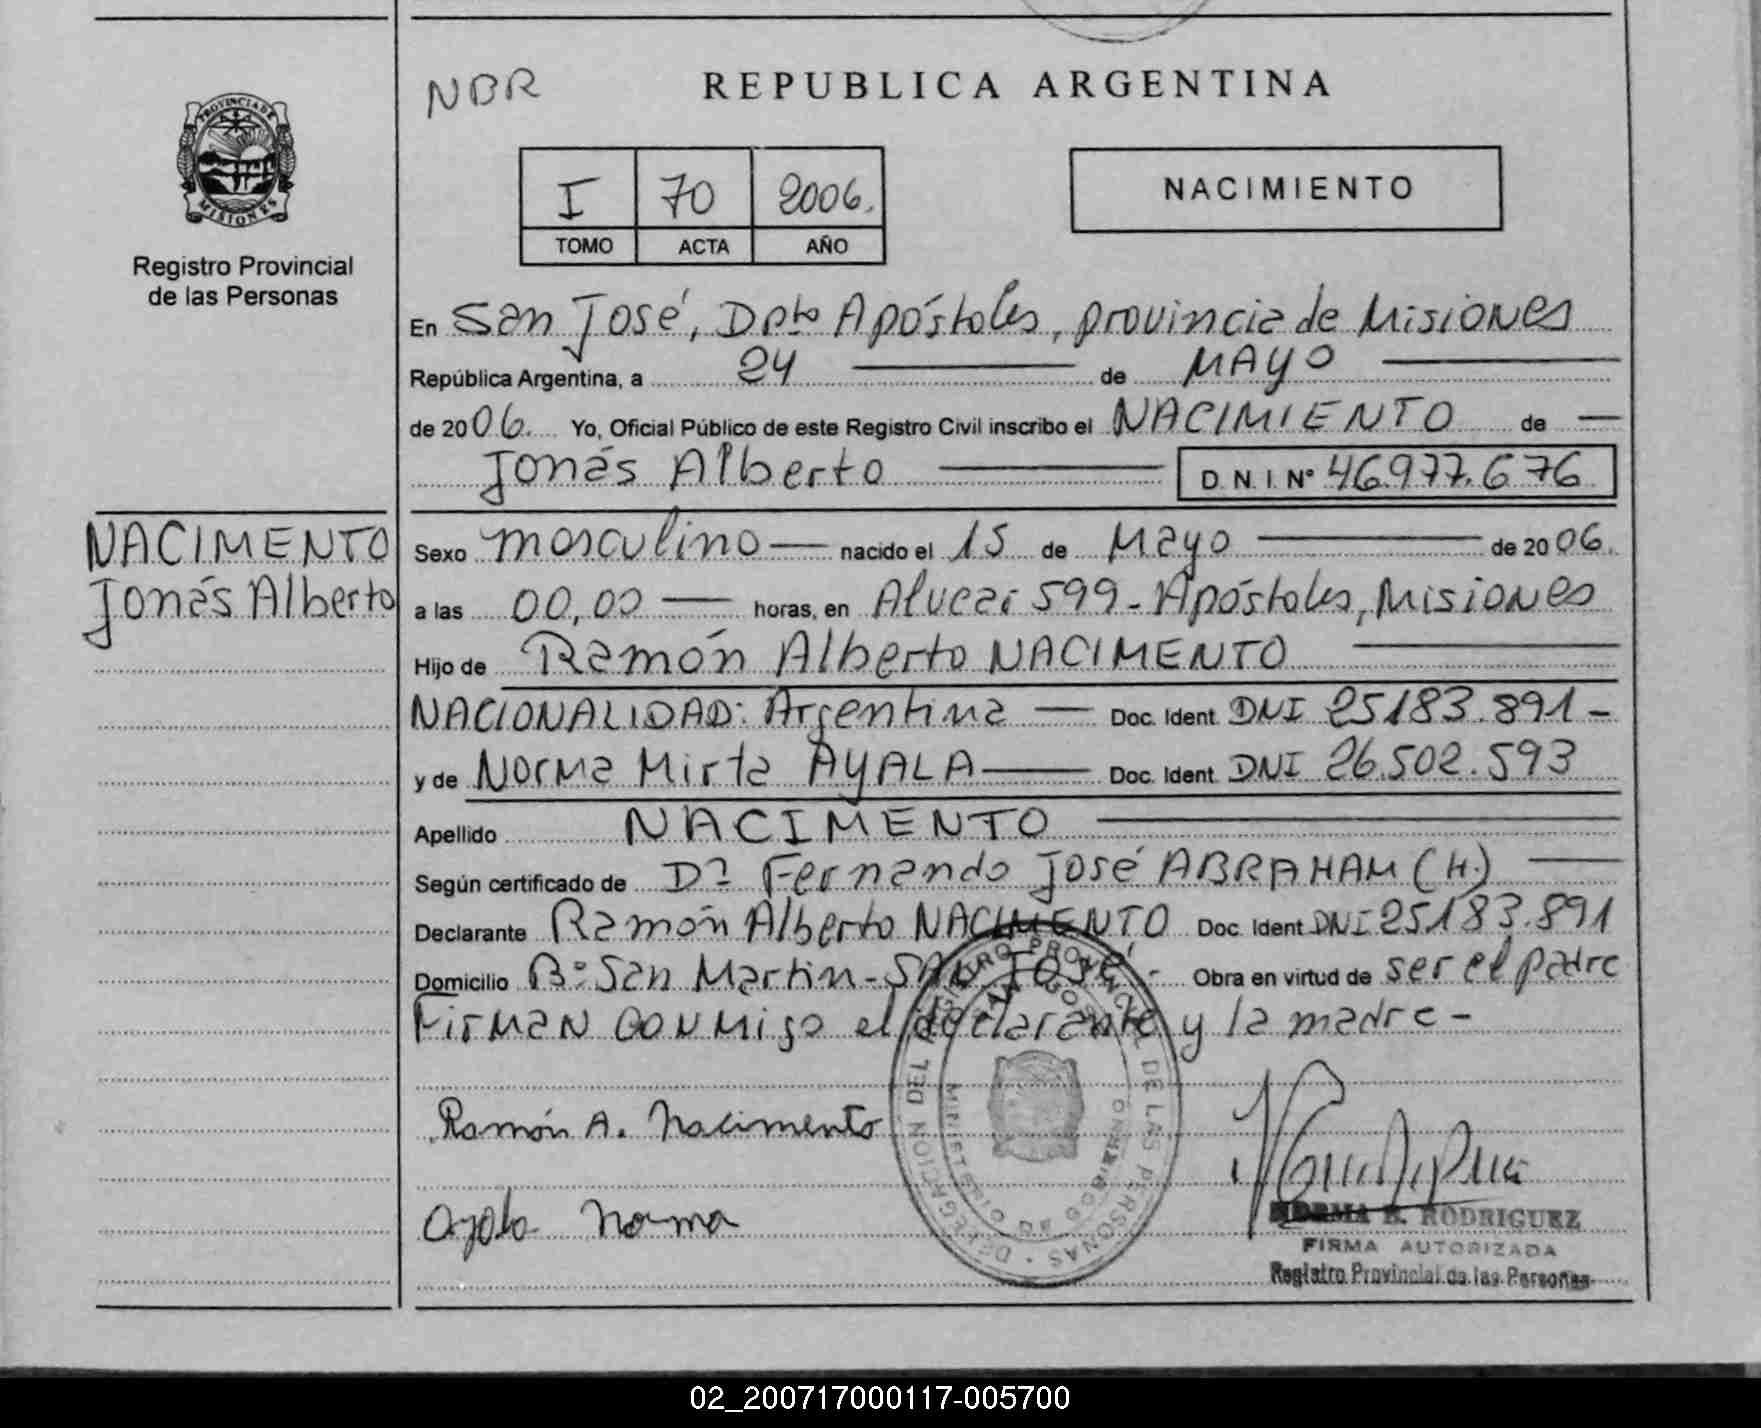 NBR
REPUBLICA ARGENTINA
PROVINCIA DE
MISIONES
Registro Provincial
de las Personas
I 70 2006.
TOMO ACTA AÑO
NACIMIENTO
En San José, Dpto Apóstoles, provincia de Misiones
República Argentina, a 24 de MAYO
de 2006. Yo, Oficial Público de este Registro Civil inscribo el NACIMIENTO de
Jonás Alberto D.N.I. Nº 46.977.676
NACIMENTO
Jonás Alberto
Sexo masculino nacido el 15 de Mayo de 2006.
a las 00,00 horas, en Alvear 599 - Apóstoles, Misiones
Hijo de Ramón Alberto NACIMENTO
NACIONALIDAD: Argentina Doc. Ident. DNI 25183.891 -
y de Norma Mirta AYALA Doc. Ident. DNI 26.502.593
Apellido NACIMENTO
Según certificado de Dr Fernando José ABRAHAM (H.)
Declarante Ramón Alberto NACIMENTO Doc. Ident DNI 25183.891
Domicilio Bº San Martin - SAN JOSÉ - Obra en virtud de ser el padre
Firman conmigo el declarante y la madre -
Ramón A. Nacimento
Ayala Norma
DELEGACION DEL REGISTRO PROVINCIAL DE LAS PERSONAS
MINISTERIO DE GOBIERNO
NORMA B. RODRIGUEZ
FIRMA AUTORIZADA
Registro Provincial de las Personas
02_200717000117-005700